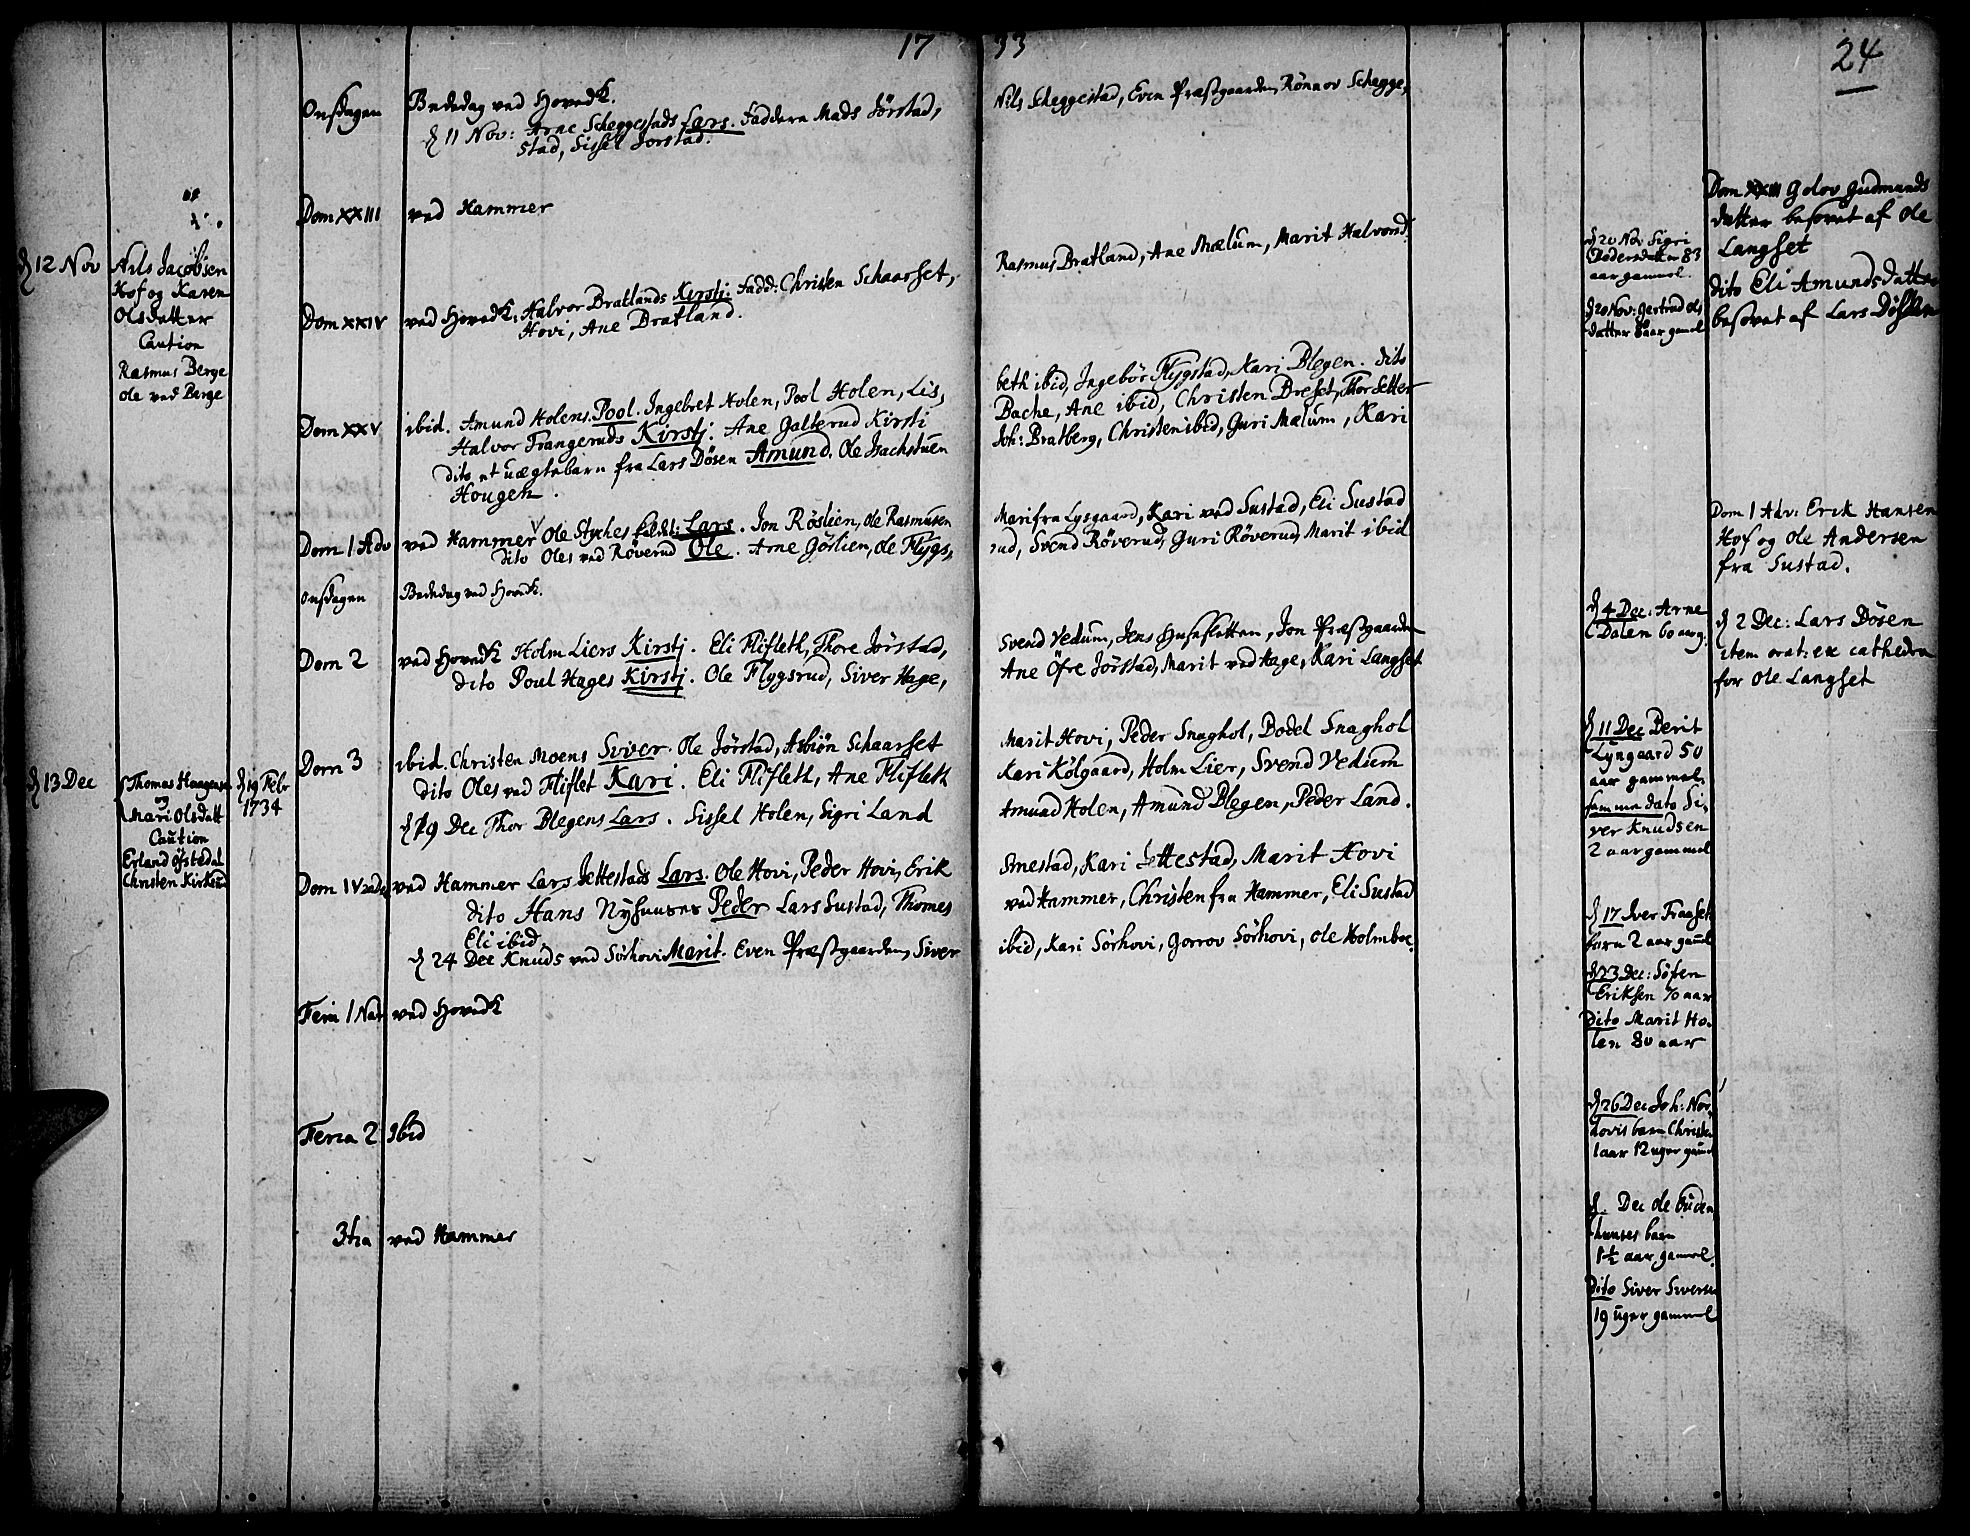 17 33
24
Onsdagen Bededag ved Hovedk.
d 11 Nov: Arne Scheggestads Lars. Faddere Mads Jörstad, Nils Scheggestad, Even Præstgaarden, Rönnov Schegge,
stad, Sissel Jorstad.
Dom XXIII ved Hammer
Dom XXIV ved Hovedk: Halvor Bratlands Kirstj. Fadd: Christen Schaarset, Rasmus Bratland, Ane Mælum, Marit Halvorsd.
Hovi, Ane Bratland.
Dom XXV ibid. Amund Holens Pool. Ingebret Holen, Pool Holen, Lis, beth ibid, Ingebör Flygstad, Kari Blegen. dito
Halvor Frangeruds Kirstj. Ane Galterud Kirsti Bache, Ane ibid, Christen Breset, Thor Setter
dito et uægtebarn fra Lars Dösen Amund. Ole Bachstuen Joh: Bratberg, Christen ibid, Guri Mælum, Kari
Hougen.
Dom 1 Adv ved Hammer Ole Lars. Jon Röslien, Ole Rasmusen Mari fra Lysgaard, Kari ved Sustad, Eli Sustad
dito Oles ved Röverud Ole. Arne Görlien, Ole Flygs, rud, Svend Röverud, Guri Röverud, Marit ibid
Onsdagen Bededag ved Hovedk.
Dom 2 ved Hovedk Holm Liers Kirstj. Eli Flifleth, Thore Jörstad, Svend Vedum, Jens Husesletten, Jon Præstgaarden
dito Poul Hages Kirstj. Ole Flygsrud, Siver Hage, Ane Öfre Jörstad, Marit ved Hage, Kari Langset
Dom 3 ibid. Christen Moens Sivver. Ole Jörstad, Asbiön Schaarset Marit Hovi, Peder Snaghol, Bodel Snaghol
dito Oles ved Fliflet Kari. Eli Flifleth, Ane Flifleth Kari Kölgaard, Holm Lier, Svend Vedum
d 19 Dec Thor Blegens Lars. Sissel Holen, Sigri Land Amund Holen, Amund Blegen, Peder Land.
Dom IV ved Hammer Lars Jettestads Lars. Ole Hovi, Peder Hovi, Erik Smestad, Kari Jettestad, Marit Hovi
dito Hans Nyhuuses Peder Lars Sustad, Thomes ved Hammer, Christen fra Hammer, Eli Sustad
Eli ibid.
d 24 Dec Knuds ved Sörhovi Marit. Even Præstgaarden, Siver ibid, Kari Sörhovi, Gorrov Sörhovi, Ole Holmboe.
Feria 1 Nat ved Hovedk
Feria 2 Ibid
3tia ved Hammer
d 12 Nov Nils Jacobsen
Hof og Karen
Olsdatter
Caution
Rasmus Berge
Ole ved Berge
d 13 Dec Thomas Haagensen d 19 Febr
og 1734
Mari Olsdatt
Caution
Erland Öfstedal
Christen Kirkerud
d 20 Nov Sigri
83
aar gammel.
d 20 Nov: Gertrud Ols
datter aar gamel
d 4 Dec: Arne
Dalen 60 aar g.
d 11 Dec Berit
Lyngaard 50
aar gammel.
samme dato Si,
ver Knudsen
2 aar gammel
d 17 Iver Fraaset
barn 2 aar gamel
d 23 Dec: Söfren
Eriksen 70 aar
dito Marit Ho,
len 80 aar
d 26 Dec Joh: Nor,
hovis barn Christen
1 aar 12 uger gamel
d. Dec Ole
huuses barn
1½ aar gammel.
dito Siver Siversen
19 uger gammel
Dom XXIII Golov Gudmunds
datter besovet af Ole
Langset
dito Eli Amundsdatter
besovet af Lars Dösen
Dom 1 Adv: Erik Hansen
Hof og Ole Andersen
fra Sustad.
d 2 Dec: Lars Dösen
item orat: ex cathedra
for Ole Langset